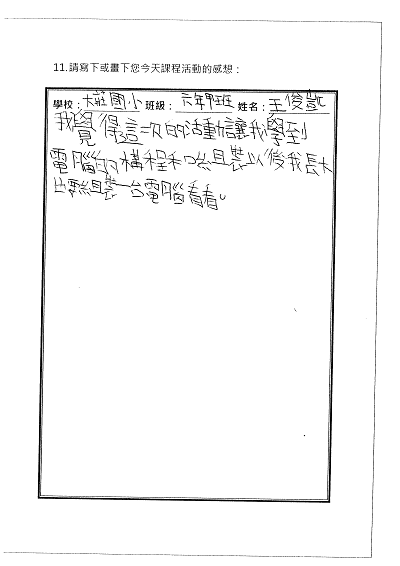 11.請寫下或畫下您今天課程活動的感想：
學校：大莊國小 班級：六年甲班 姓名：王俊凱
我覺得這一次的活動讓我學到
電腦的構程和組裝以後我長大
也要組裝一台電腦看看。